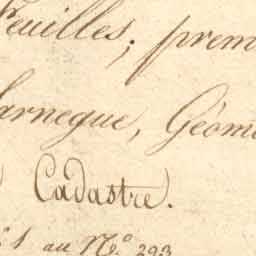 Feuilles; prem
Larnegue, Géomè
Cadastre.
1 au N.º 293